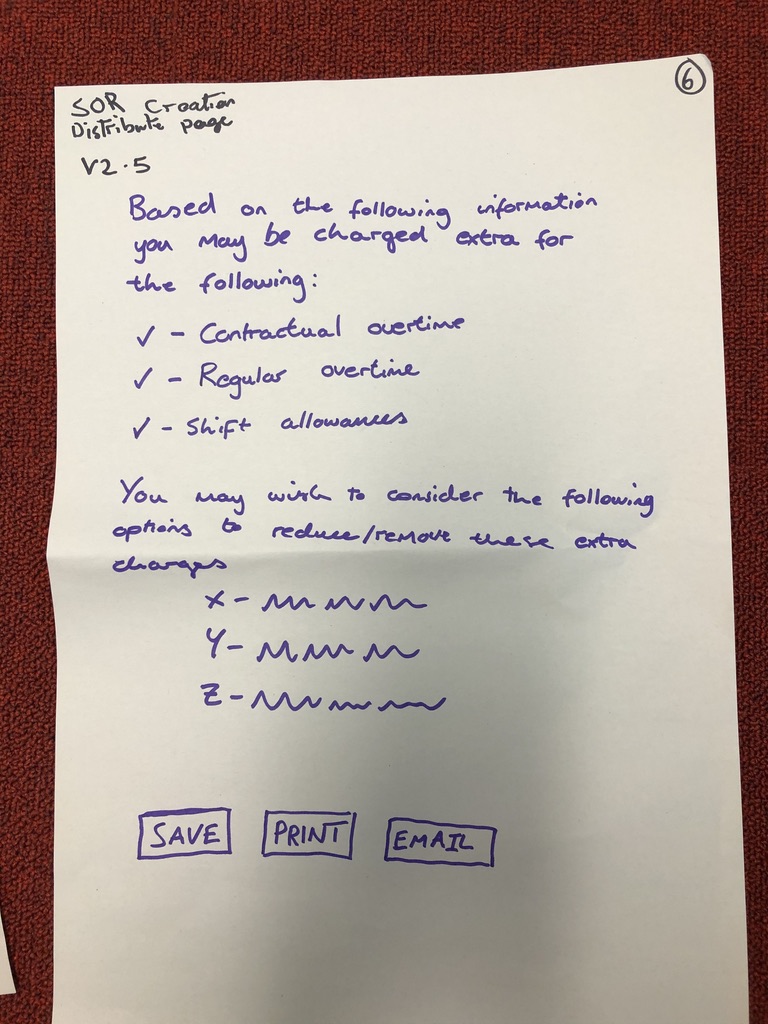 SOR Creation
Distribute page
V2.5
6
Based on the following information
you may be charged extra for
the following:
✓ - Contractual overtime
✓ - Regular overtime
✓ - Shift allowances
You may wish to consider the following
options to reduce/remove these extra
charges
X -
Y -
Z -
SAVE PRINT EMAIL